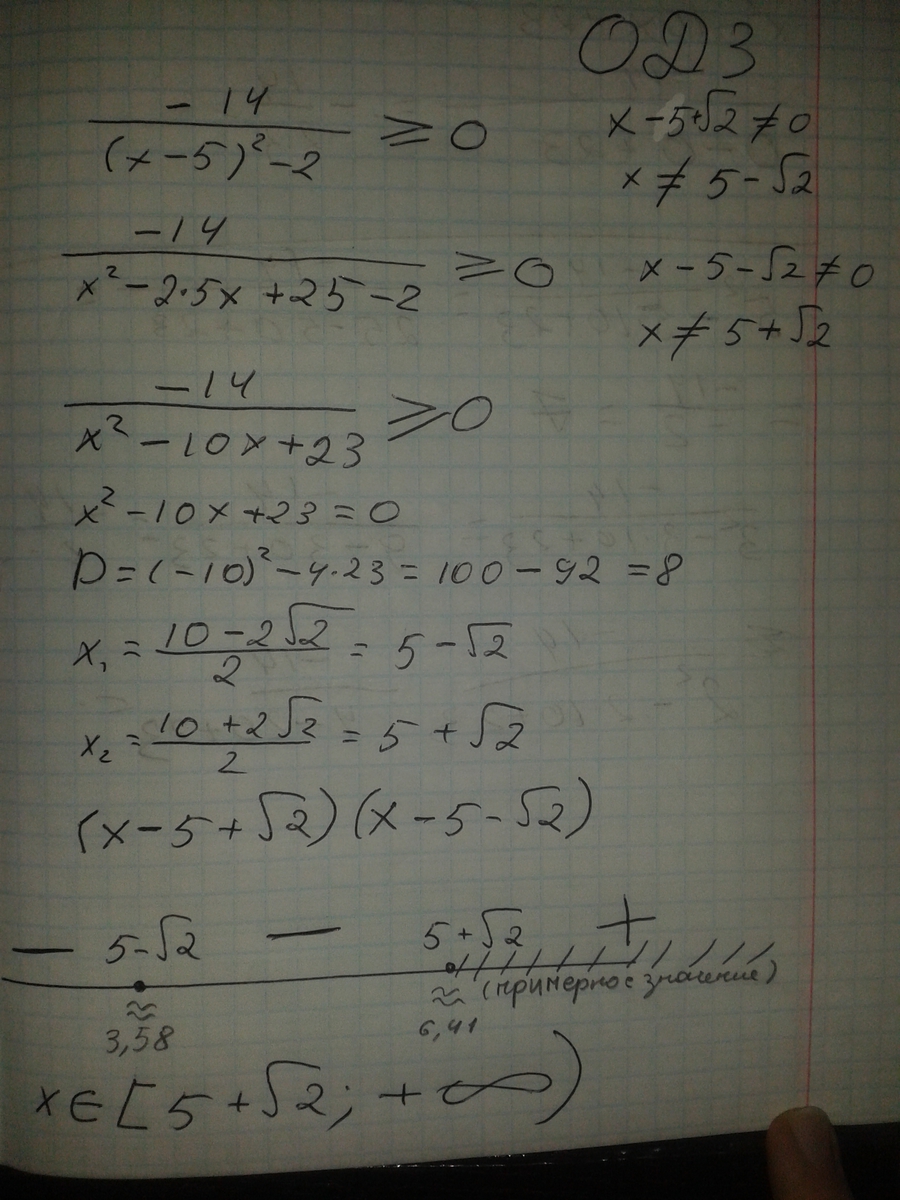 ОДЗ
-14 / ((x-5)² - 2) ⩾ 0
x - 5 + √2 ≠ 0
x ≠ 5 - √2
-14 / (x² - 2·5x + 25 - 2) ⩾ 0
x - 5 - √2 ≠ 0
x ≠ 5 + √2
-14 / (x² - 10x + 23) ⩾ 0
x² - 10x + 23 = 0
D = (-10)² - 4·23 = 100 - 92 = 8
x₁ = (10 - 2√2) / 2 = 5 - √2
x₂ = (10 + 2√2) / 2 = 5 + √2
(x - 5 + √2)(x - 5 - √2)
— 5-√2 — 5+√2 +
≈ 3,58 ≈ 6,41 (примерное значение)
x ∈ [5 + √2; +∞)